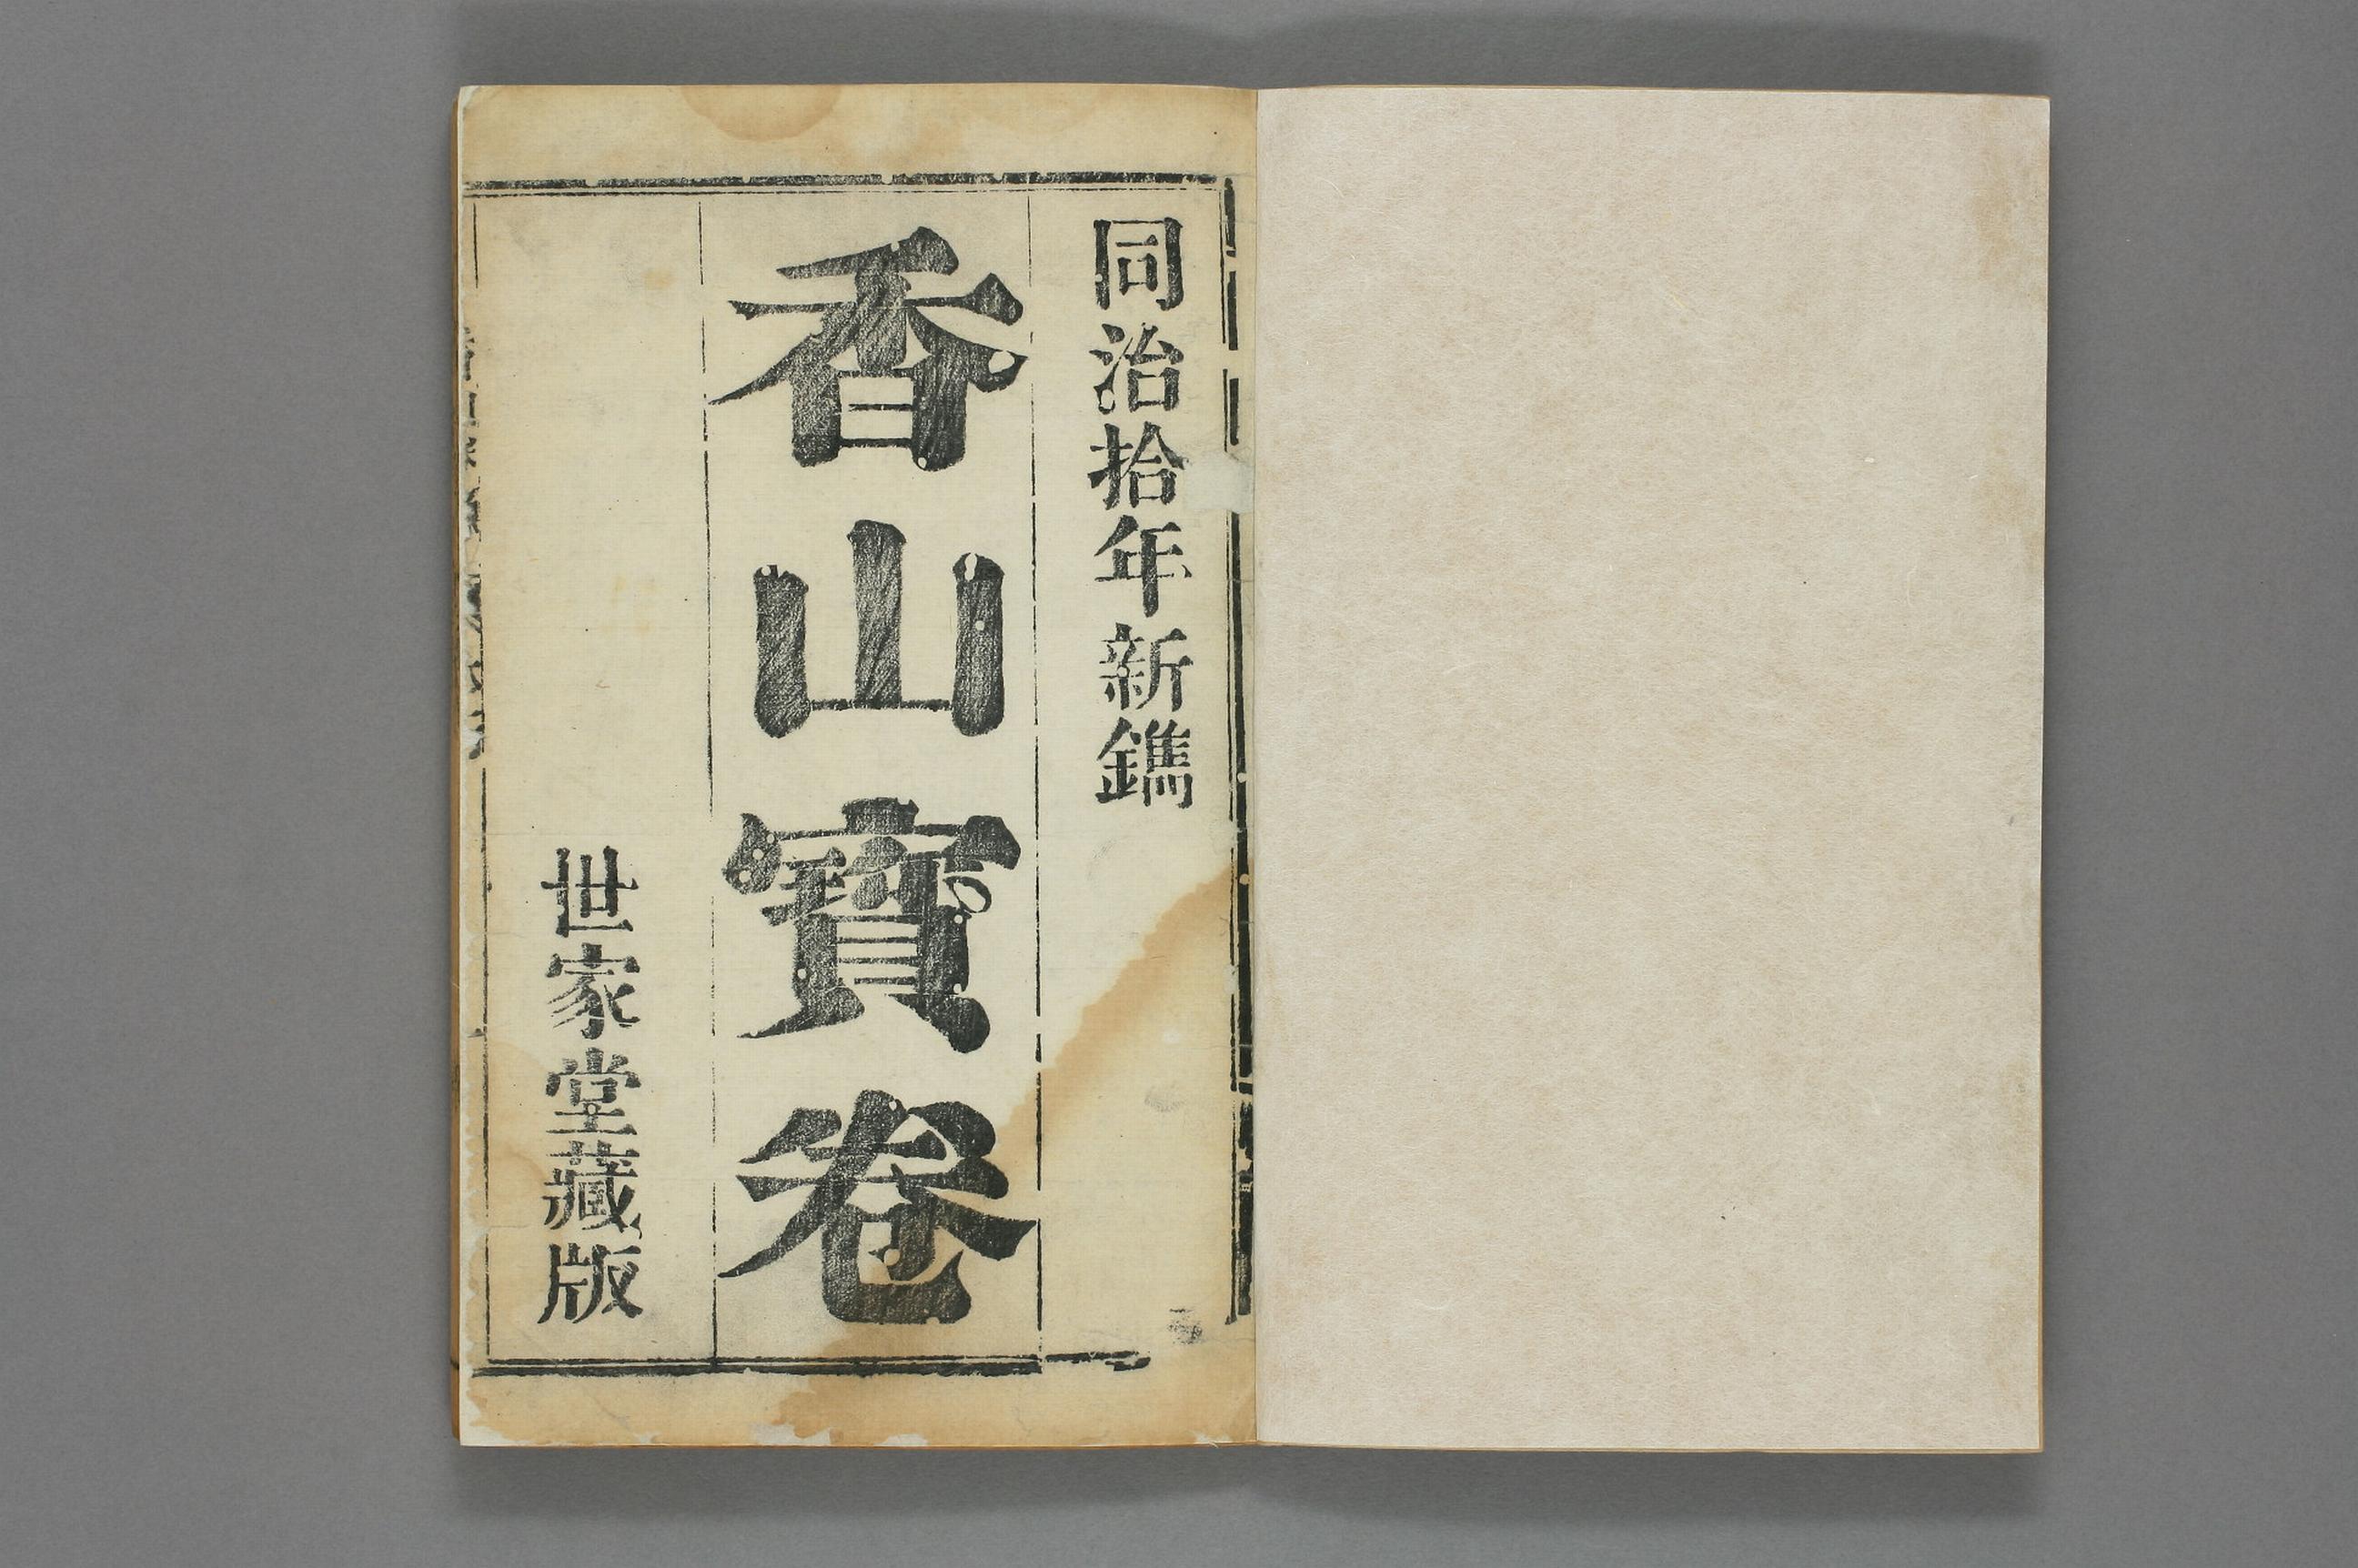 同治拾年新鐫
香山寶卷
世家堂藏版